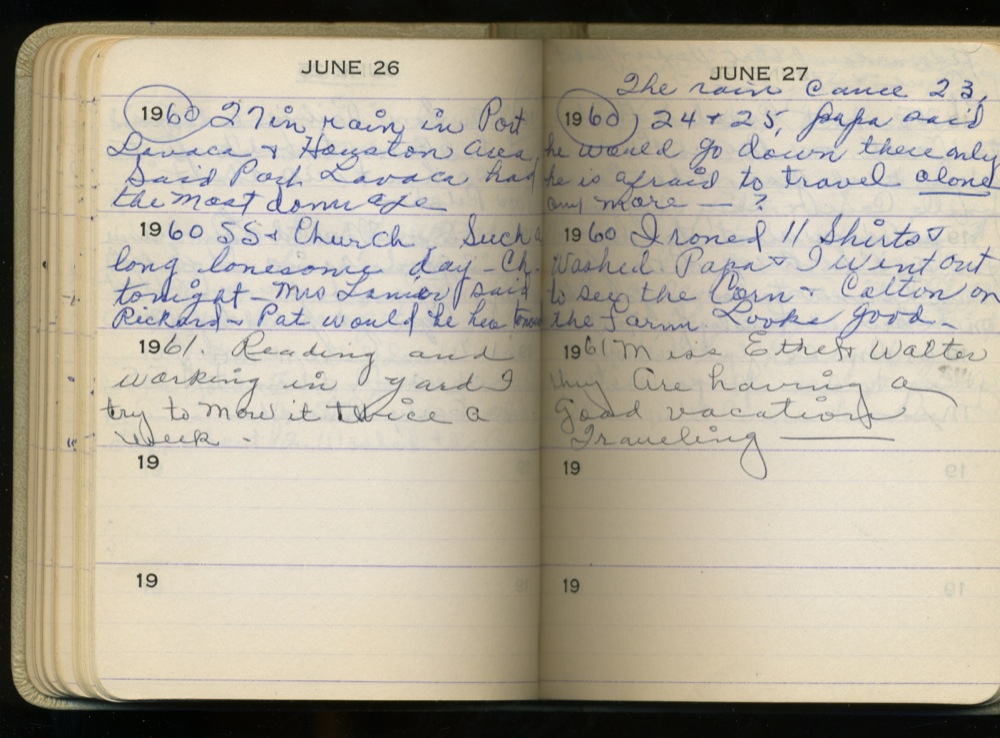 JUNE 26
1960 27 in rain in Port
Lavaca & Houston area,
Said Port Lavaca had
the most damage
1960 SS & Church. Such a
long lonesome day - Ch.
tonight - Mrs Lanier said
Rickard & Pat would be here
1961. Reading and
working in yard I
try to mow it twice a
week -
19
19
JUNE 27
The rain came 23,
1960 24 + 25, Papa said
he would go down there only
he is afraid to travel alone
any more — ?
1960 Ironed 11 Shirts &
Washed. Papa & I went out
to see the Corn & Cotton on
the Farm. Looks good -
1961 Miss Ethel & Walter
they are having a
good vacation
Traveling —
19
19